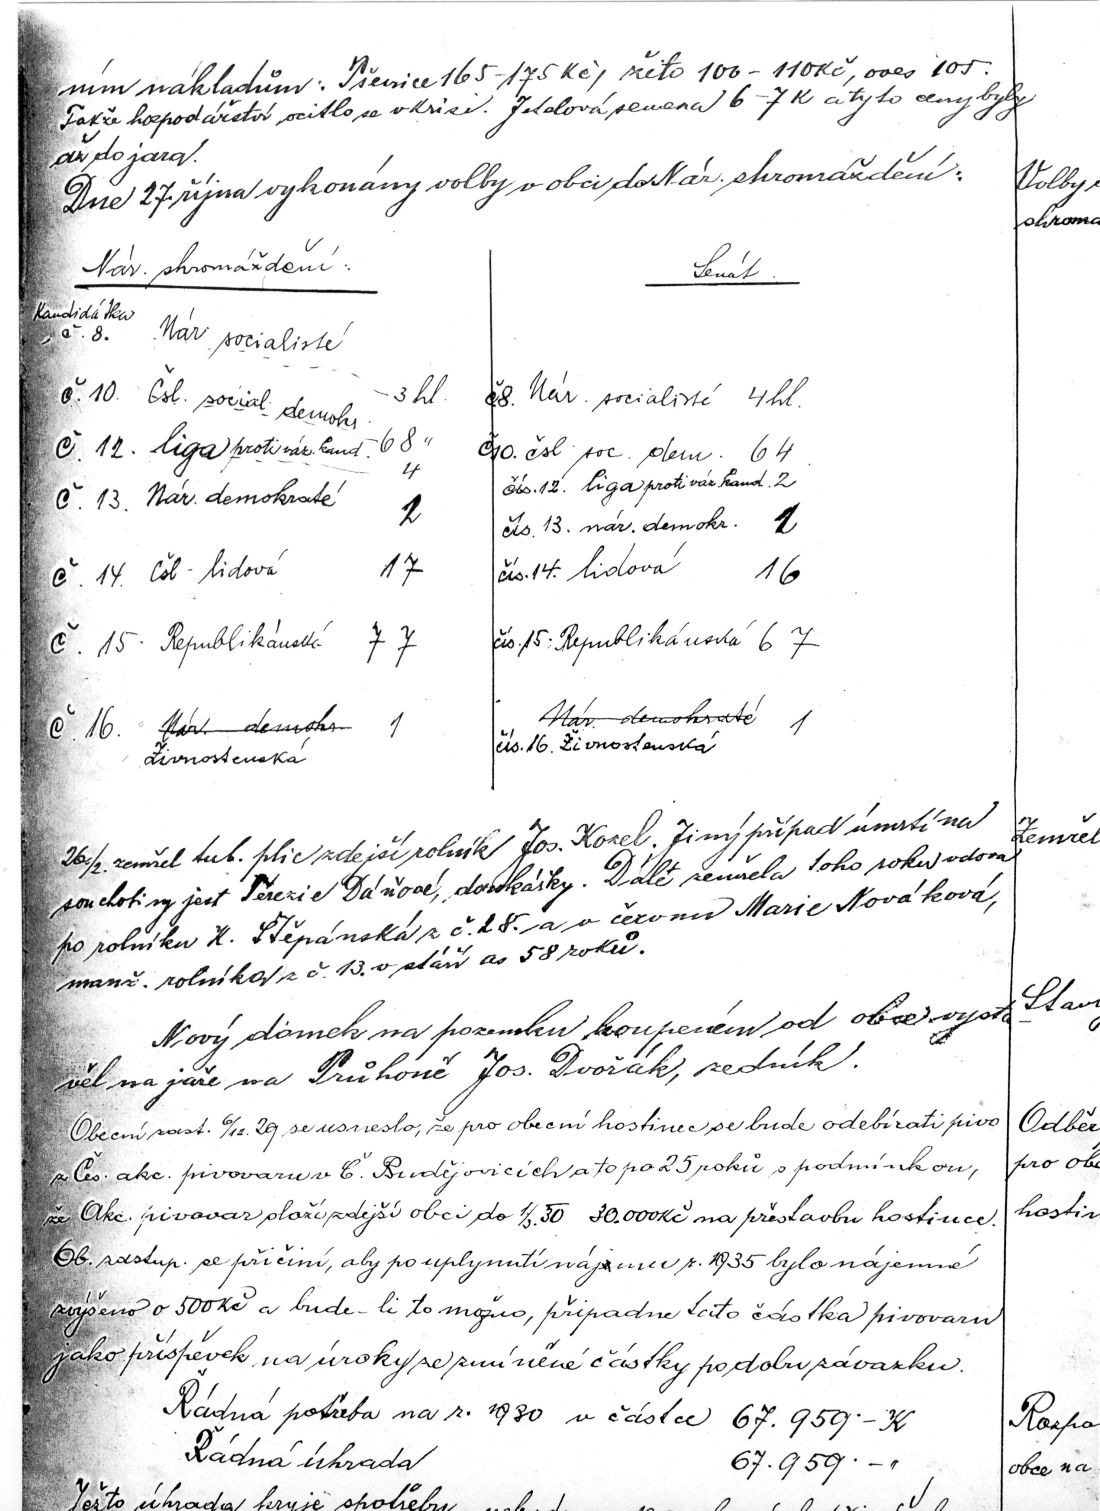 ním nákladům: Pšenice 165-175 Kč, žito 100-110 Kč, oves 105.
Takže hospodářství ocitlo se v krisi. Jetelová semena 6-7 K a tyto ceny byly
až do jara.
Dne 27. října vykonány volby v obci do Nár. shromáždění:
Volby
shroma
Nár. shromáždění:
Senát
Kandidátka
č. 8. Nár. socialisté
č. 10. Čsl. social. demokr. - 3 hl.
č8. Nár. socialisté 4 hl.
č. 12. liga proti váz. kand. 68 "
č10. čsl soc. dem. 64
4
čís. 12. liga proti váz. kand. 2
č. 13. Nár. demokraté 2
čís. 13. nár. demokr. 2
č. 14. Čsl - lidová 17
čís. 14. lidová 16
č. 15. Republikánská 77
čís. 15: Republikánská 67
č. 16. Nár. demokr 1
Nár. demokraté 1
Živnostenská
čís. 16. Živnostenská
26./2. zemřel tub. plic zdejší rolník Jos. Kozel. Jiný případ úmrtí na
Zemřel
souchotiny jest Terezie Dáňové, domkářky. Dále zemřela toho roku vdova
po rolníku K. Štěpánská z č. 28. a v červnu Marie Nováková,
manž. rolníka z č. 13. v stáří as 58 roků.
Nový domek na pozemku koupeném od obce vysta
Stav
věl na jaře na Průhoně Jos. Dvořák, zedník.
Obecní zast. 6/12. 29 se usneslo, že pro obecní hostinec se bude odebírati pivo
Odběr
z Čes. akc. pivovaru v Č. Budějovicích a to po 25 roků s podmínkou,
pro obe
že Akc. pivovar složí zdejší obci do 1/3. 30 30.000 Kč na přestavbu hostince.
hostin
Ob. zastup. se přičiní, aby po uplynutí nájmu r. 1935 bylo nájemné
zvýšeno o 500 Kč a bude-li to možno, připadne tato částka pivovaru
jako příspěvek na úroky ze zmíněné částky po dobu závazku.
Řádná potřeba na r. 1930 v částce 67.959.- K
Rozpo
Řádná úhrada 67.959.- "
obce na
Ježto úhrada kryje spotřebu